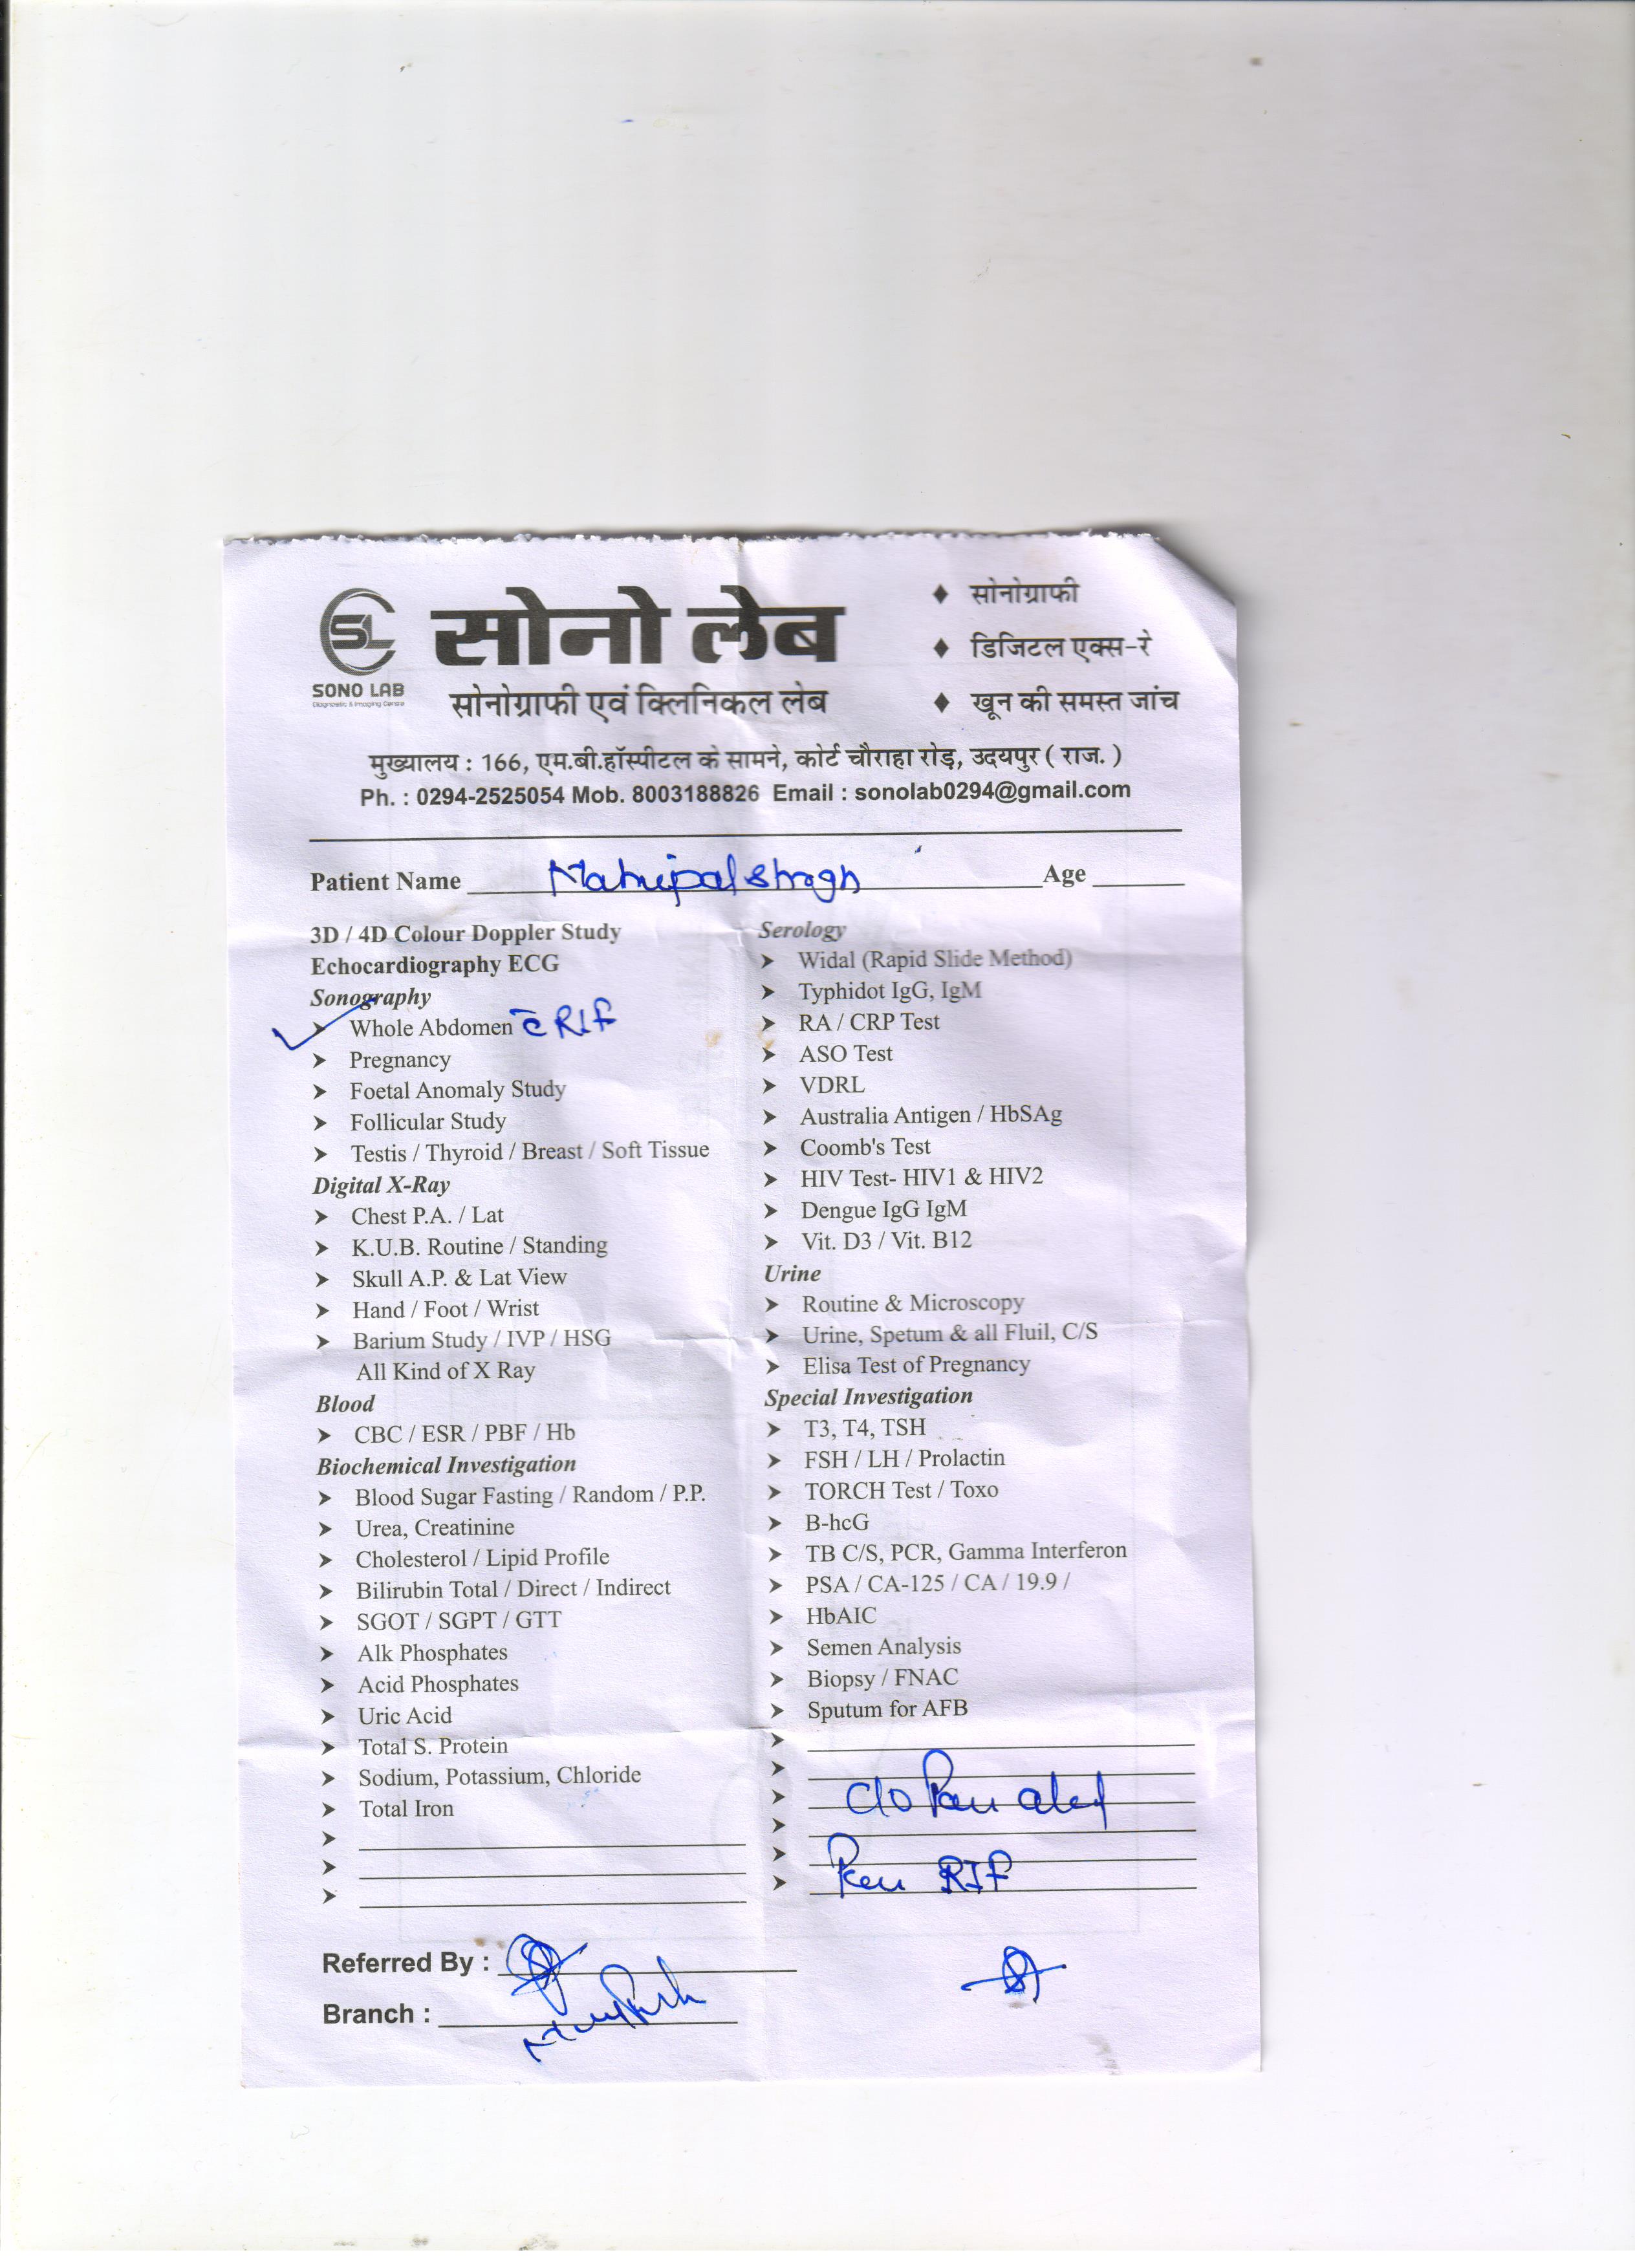 SL
SONO LAB
Diagnostic & Imaging Centre
सोनो लेब
सोनोग्राफी एवं क्लिनिकल लेब
♦ सोनोग्राफी
♦ डिजिटल एक्स-रे
♦ खून की समस्त जांच
मुख्यालय : 166, एम.बी.हॉस्पीटल के सामने, कोर्ट चौराहा रोड़, उदयपुर ( राज. )
Ph. : 0294-2525054 Mob. 8003188826 Email : sonolab0294@gmail.com
Patient Name Mahipal Singh Age
3D / 4D Colour Doppler Study
Echocardiography ECG
Sonography
➤ Whole Abdomen c̄ RIF
➤ Pregnancy
➤ Foetal Anomaly Study
➤ Follicular Study
➤ Testis / Thyroid / Breast / Soft Tissue
Digital X-Ray
➤ Chest P.A. / Lat
➤ K.U.B. Routine / Standing
➤ Skull A.P. & Lat View
➤ Hand / Foot / Wrist
➤ Barium Study / IVP / HSG
All Kind of X Ray
Blood
➤ CBC / ESR / PBF / Hb
Biochemical Investigation
➤ Blood Sugar Fasting / Random / P.P.
➤ Urea, Creatinine
➤ Cholesterol / Lipid Profile
➤ Bilirubin Total / Direct / Indirect
➤ SGOT / SGPT / GTT
➤ Alk Phosphates
➤ Acid Phosphates
➤ Uric Acid
➤ Total S. Protein
➤ Sodium, Potassium, Chloride
➤ Total Iron
Serology
➤ Widal (Rapid Slide Method)
➤ Typhidot IgG, IgM
➤ RA / CRP Test
➤ ASO Test
➤ VDRL
➤ Australia Antigen / HbSAg
➤ Coomb's Test
➤ HIV Test- HIV1 & HIV2
➤ Dengue IgG IgM
➤ Vit. D3 / Vit. B12
Urine
➤ Routine & Microscopy
➤ Urine, Spetum & all Fluil, C/S
➤ Elisa Test of Pregnancy
Special Investigation
➤ T3, T4, TSH
➤ FSH / LH / Prolactin
➤ TORCH Test / Toxo
➤ B-hcG
➤ TB C/S, PCR, Gamma Interferon
➤ PSA / CA-125 / CA / 19.9 /
➤ HbAIC
➤ Semen Analysis
➤ Biopsy / FNAC
➤ Sputum for AFB
C/O Pain abd
Pain RIF
Referred By :
Branch :